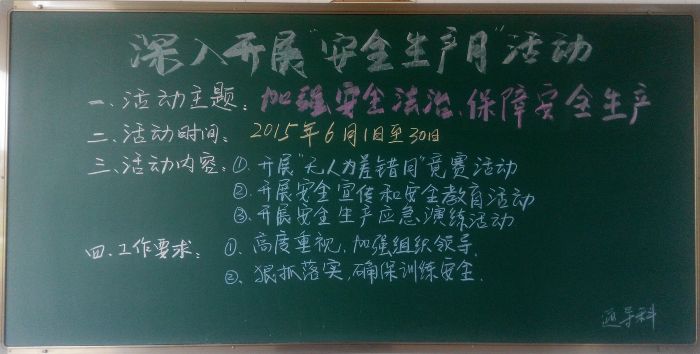 深入开展"安全生产月"活动
一、活动主题:加强安全法治、保障安全生产
二、活动时间:2015年6月1日至30日
三、活动内容:①.开展"无人为差错月"竞赛活动
②.开展安全宣传和安全教育活动
③.开展安全生产应急演练活动
四.工作要求:①、高度重视,加强组织领导.
②、狠抓落实,确保训练安全.
导科